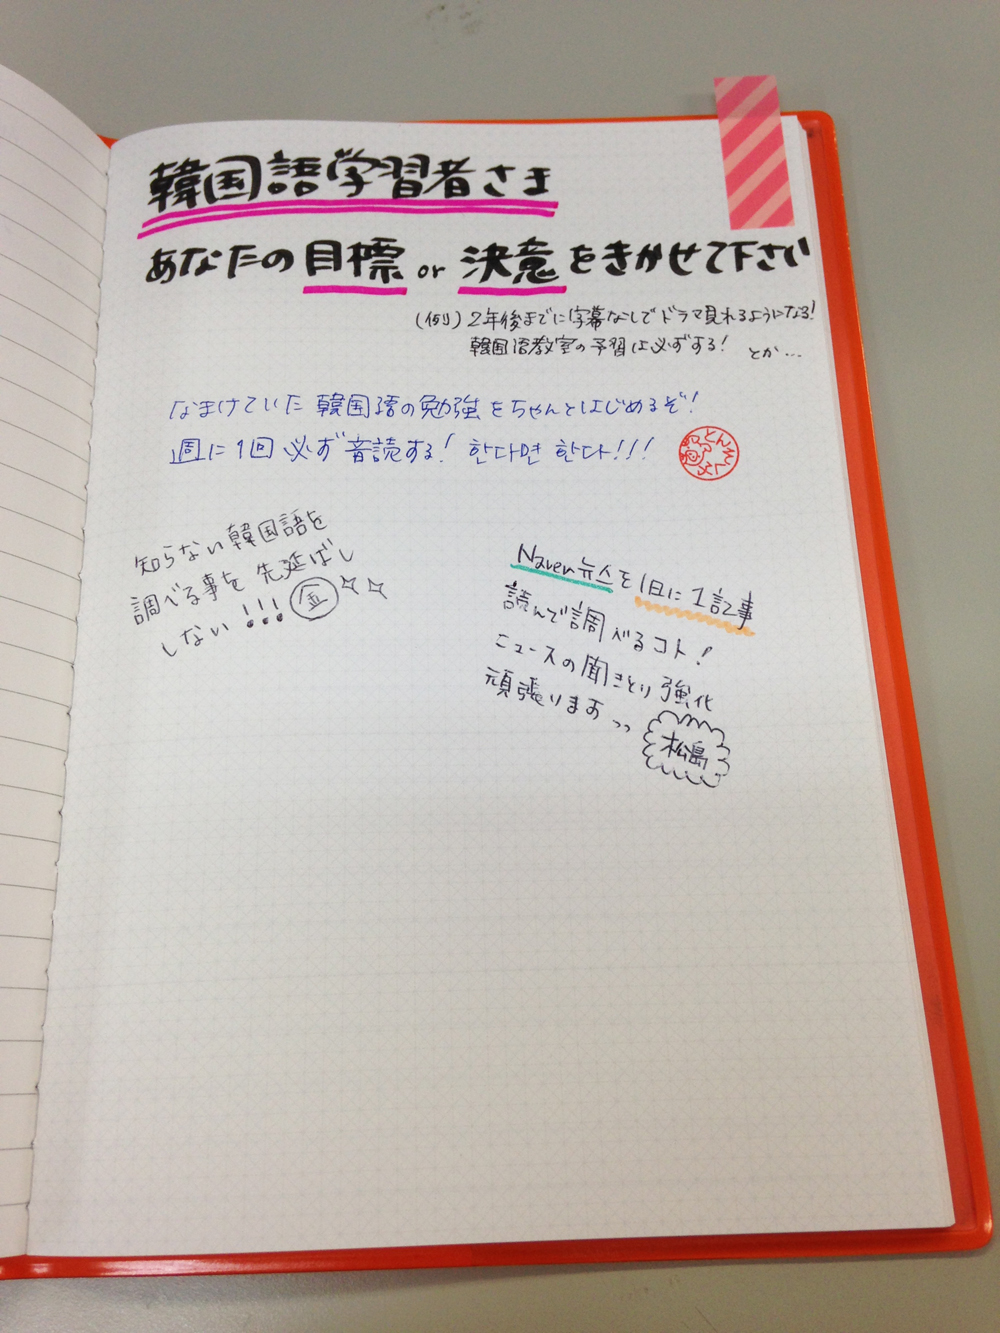 韓国語学習者さま
あなたの目標 or 決意をきかせて下さい
(例) 2年後までに字幕なしでドラマ見れるようになる!
韓国語教室の予習は必ずする! とか...
なまけていた韓国語の勉強をちゃんとはじめるぞ!
週に1回必ず音読する! 한다면 한다!!!
知らない韓国語を
調べる事を先延ばし
しない!!! 金
Naver뉴스を1日に1記事
読んで調べるコト!
ニュースの聞きとり強化
頑張りますっっ
松島